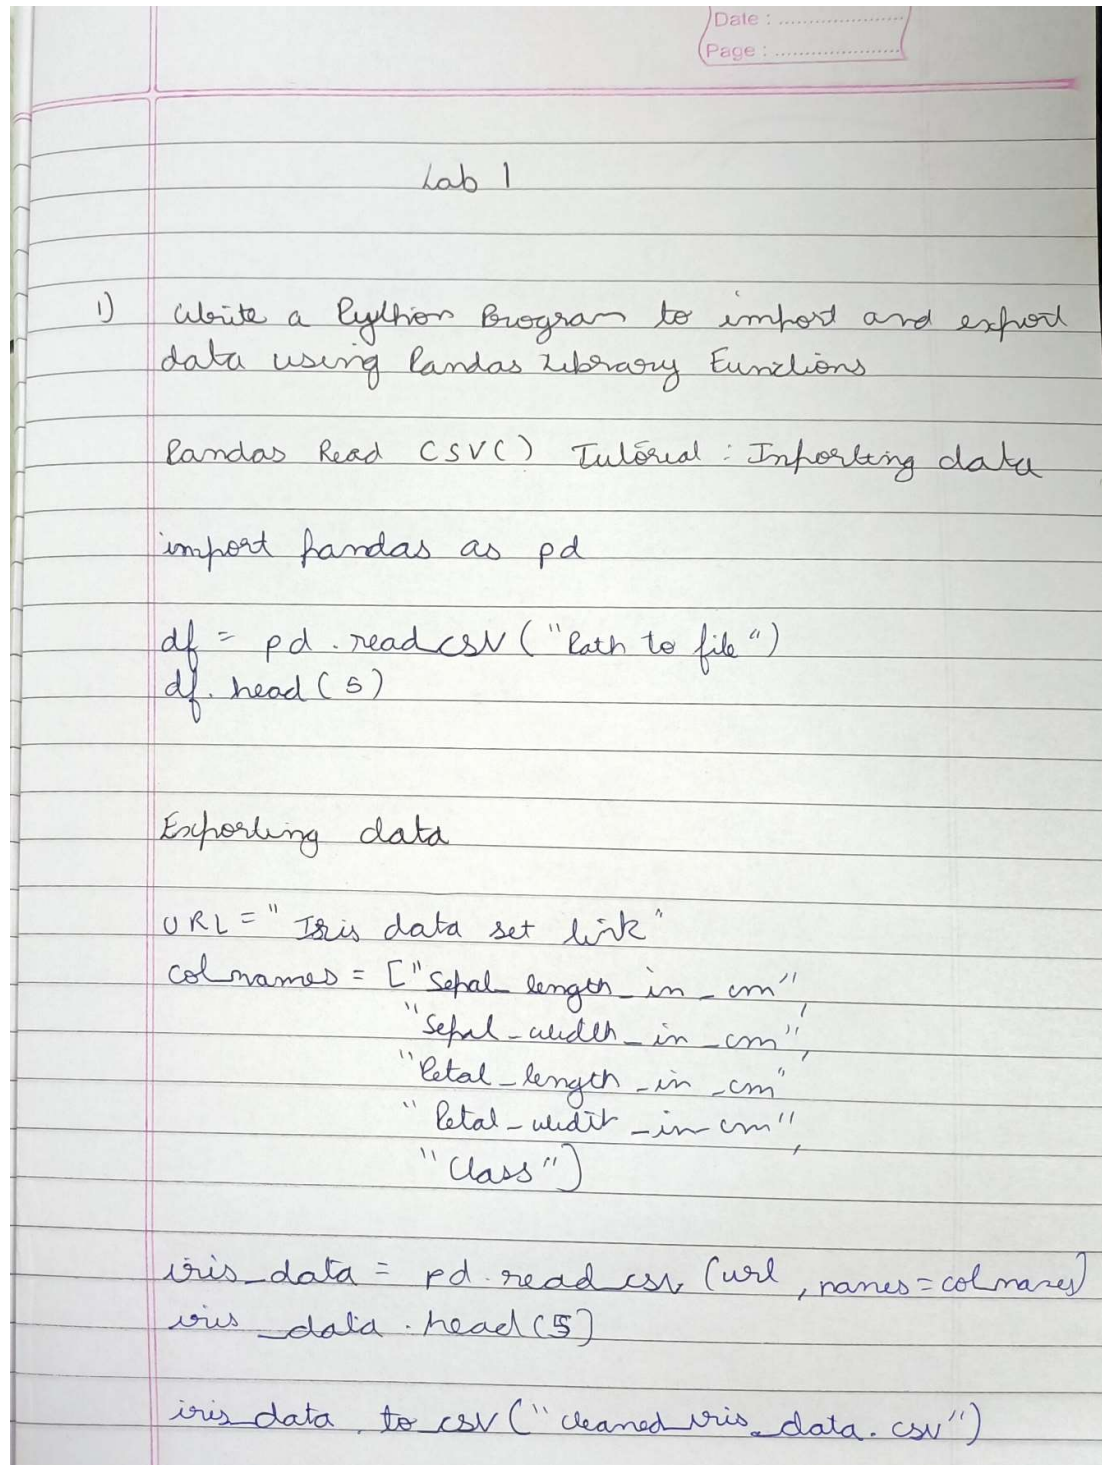 Date : ....................
Page : ....................
Lab 1
1) Write a Python Program to import and export
data using Pandas Library Functions
Pandas Read CSV() Tutorial : Importing data
import pandas as pd
df = pd.read_csv("Path to file")
df.head(5)
Exporting data
URL = "Iris data set link"
col_names = ["Sepal_length_in_cm",
"Sepal_width_in_cm",
"Petal_length_in_cm"
"Petal_widit_in_cm",
"Class"]
iris_data = pd.read_csv(url, names=col_names)
iris_data.head(5)
iris_data.to_csv("cleaned_iris_data.csv")